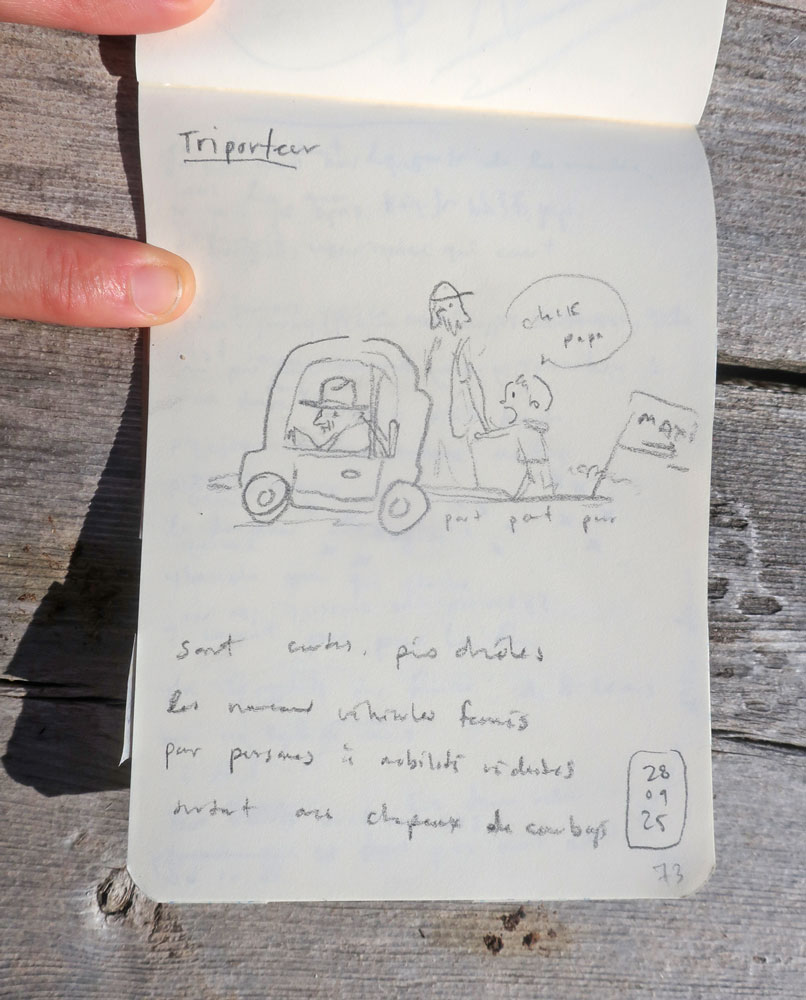 Triporteur
check
papa
MAXI
put put put
sont cutes, pis drôles
les nouveaux véhicules fermés
pour personnes à mobilité réduites
surtout avec chapeaux de cowboys
28
09
25
73